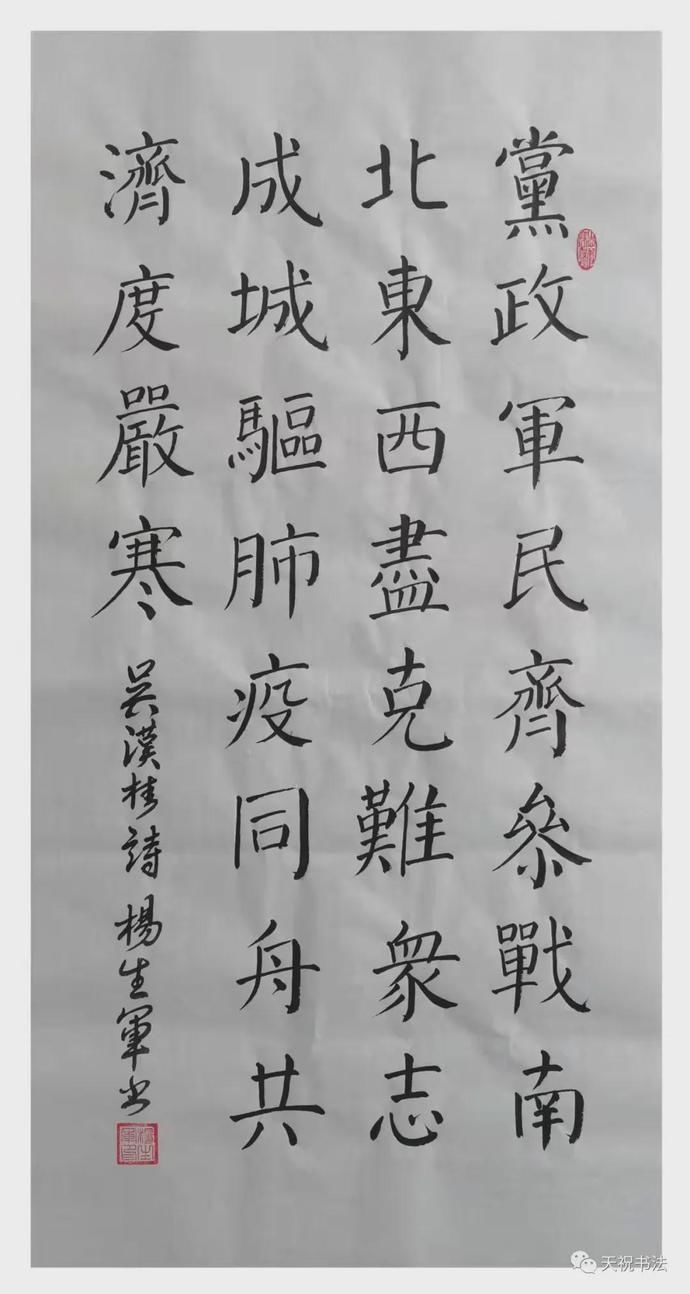 黨政軍民齊參戰南
北東西盡克難衆志
成城驅肺疫同舟共
濟度嚴寒
吴漢桂詩 楊生軍书
天祝书法